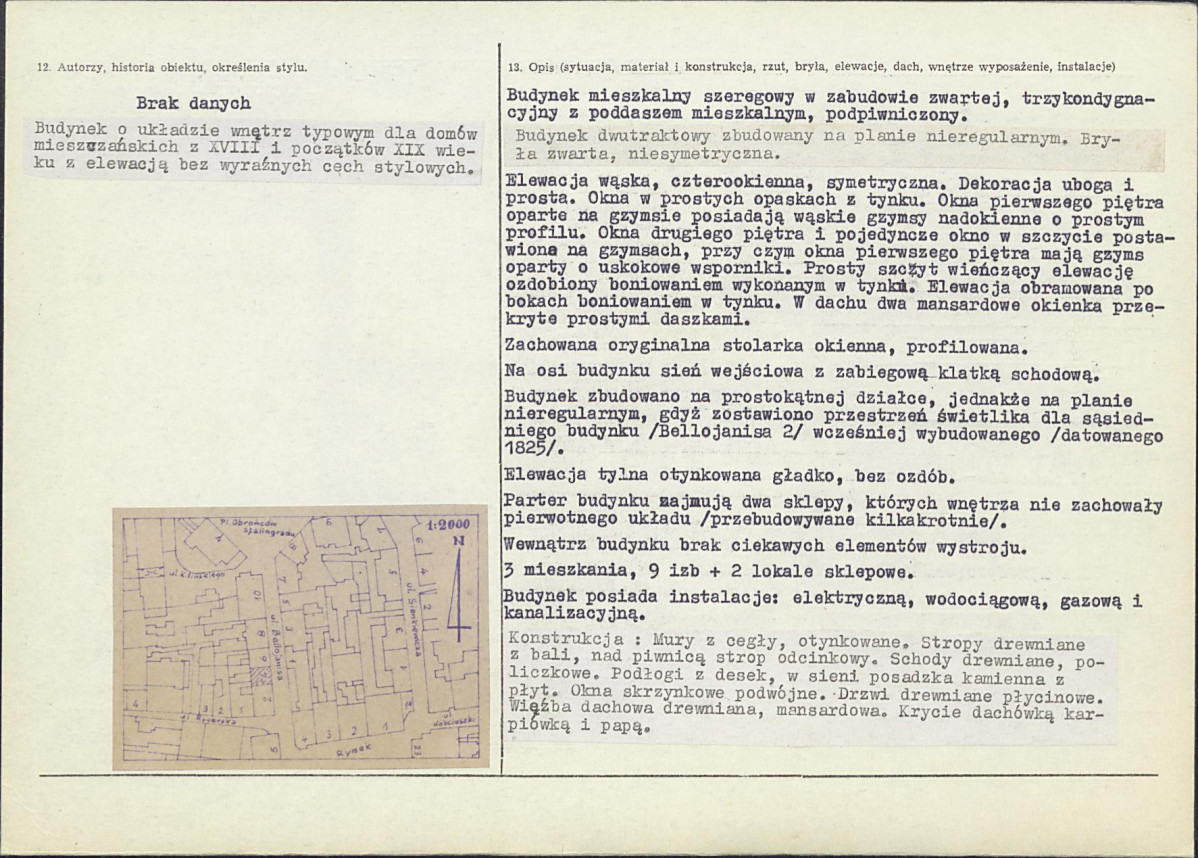 12. Autorzy, historia obiektu, określenia stylu.
Brak danych
Budynek o układzie wnętrz typowym dla domów
mieszczańskich z XVIII i początków XIX wie-
ku z elewacją bez wyraźnych cech stylowych.
13. Opis (sytuacja, materiał i konstrukcja, rzut, bryła, elewacje, dach, wnętrze wyposażenie, instalacje)
Budynek mieszkalny szeregowy w zabudowie zwartej, trzykondygna-
cyjny z poddaszem mieszkalnym, podpiwniczony.
Budynek dwutraktowy zbudowany na planie nieregularnym. Bry-
ła zwarta, niesymetryczna.
Elewacja wąska, czterookienna, symetryczna. Dekoracja uboga i
prosta. Okna w prostych opaskach z tynku. Okna pierwszego piętra
oparte na gzymsie posiadają wąskie gzymsy nadokienne o prostym
profilu. Okna drugiego piętra i pojedyncze okno w szczycie posta-
wione na gzymsach, przy czym okna pierwszego piętra mają gzyms
oparty o uskokowe wsporniki. Prosty szczyt wieńczący elewację
ozdobiony boniowaniem wykonanym w tynku. Elewacja obramowana po
bokach boniowaniem w tynku. W dachu dwa mansardowe okienka prze-
kryte prostymi daszkami.
Zachowana oryginalna stolarka okienna, profilowana.
Na osi budynku sień wejściowa z zabiegową klatką schodową.
Budynek zbudowano na prostokątnej działce, jednakże na planie
nieregularnym, gdyż zostawiono przestrzeń świetlika dla sąsied-
niego budynku /Bellojanisa 2/ wcześniej wybudowanego /datowanego
1825/.
Elewacja tylna otynkowana gładko, bez ozdób.
Parter budynku zajmują dwa sklepy, których wnętrza nie zachowały
pierwotnego układu /przebudowywane kilkakrotnie/.
Wewnątrz budynku brak ciekawych elementów wystroju.
3 mieszkania, 9 izb + 2 lokale sklepowe.
Budynek posiada instalacje: elektryczną, wodociągową, gazową i
kanalizacyjną.
Konstrukcja : Mury z cegły, otynkowane. Stropy drewniane
z bali, nad piwnicą strop odcinkowy. Schody drewniane, po-
liczkowe. Podłogi z desek, w sieni posadzka kamienna z
płyt. Okna skrzynkowe podwójne. Drzwi drewniane płycinowe.
Więźba dachowa drewniana, mansardowa. Krycie dachówką kar-
piówką i papą.
Pl. Obrońców
Stalingradu
1:2000
N
ul. Kilińskiego
ul. Sienkiewicza
10
8
6
2
4
3 2 1
4 3 2 1
Rynek
23